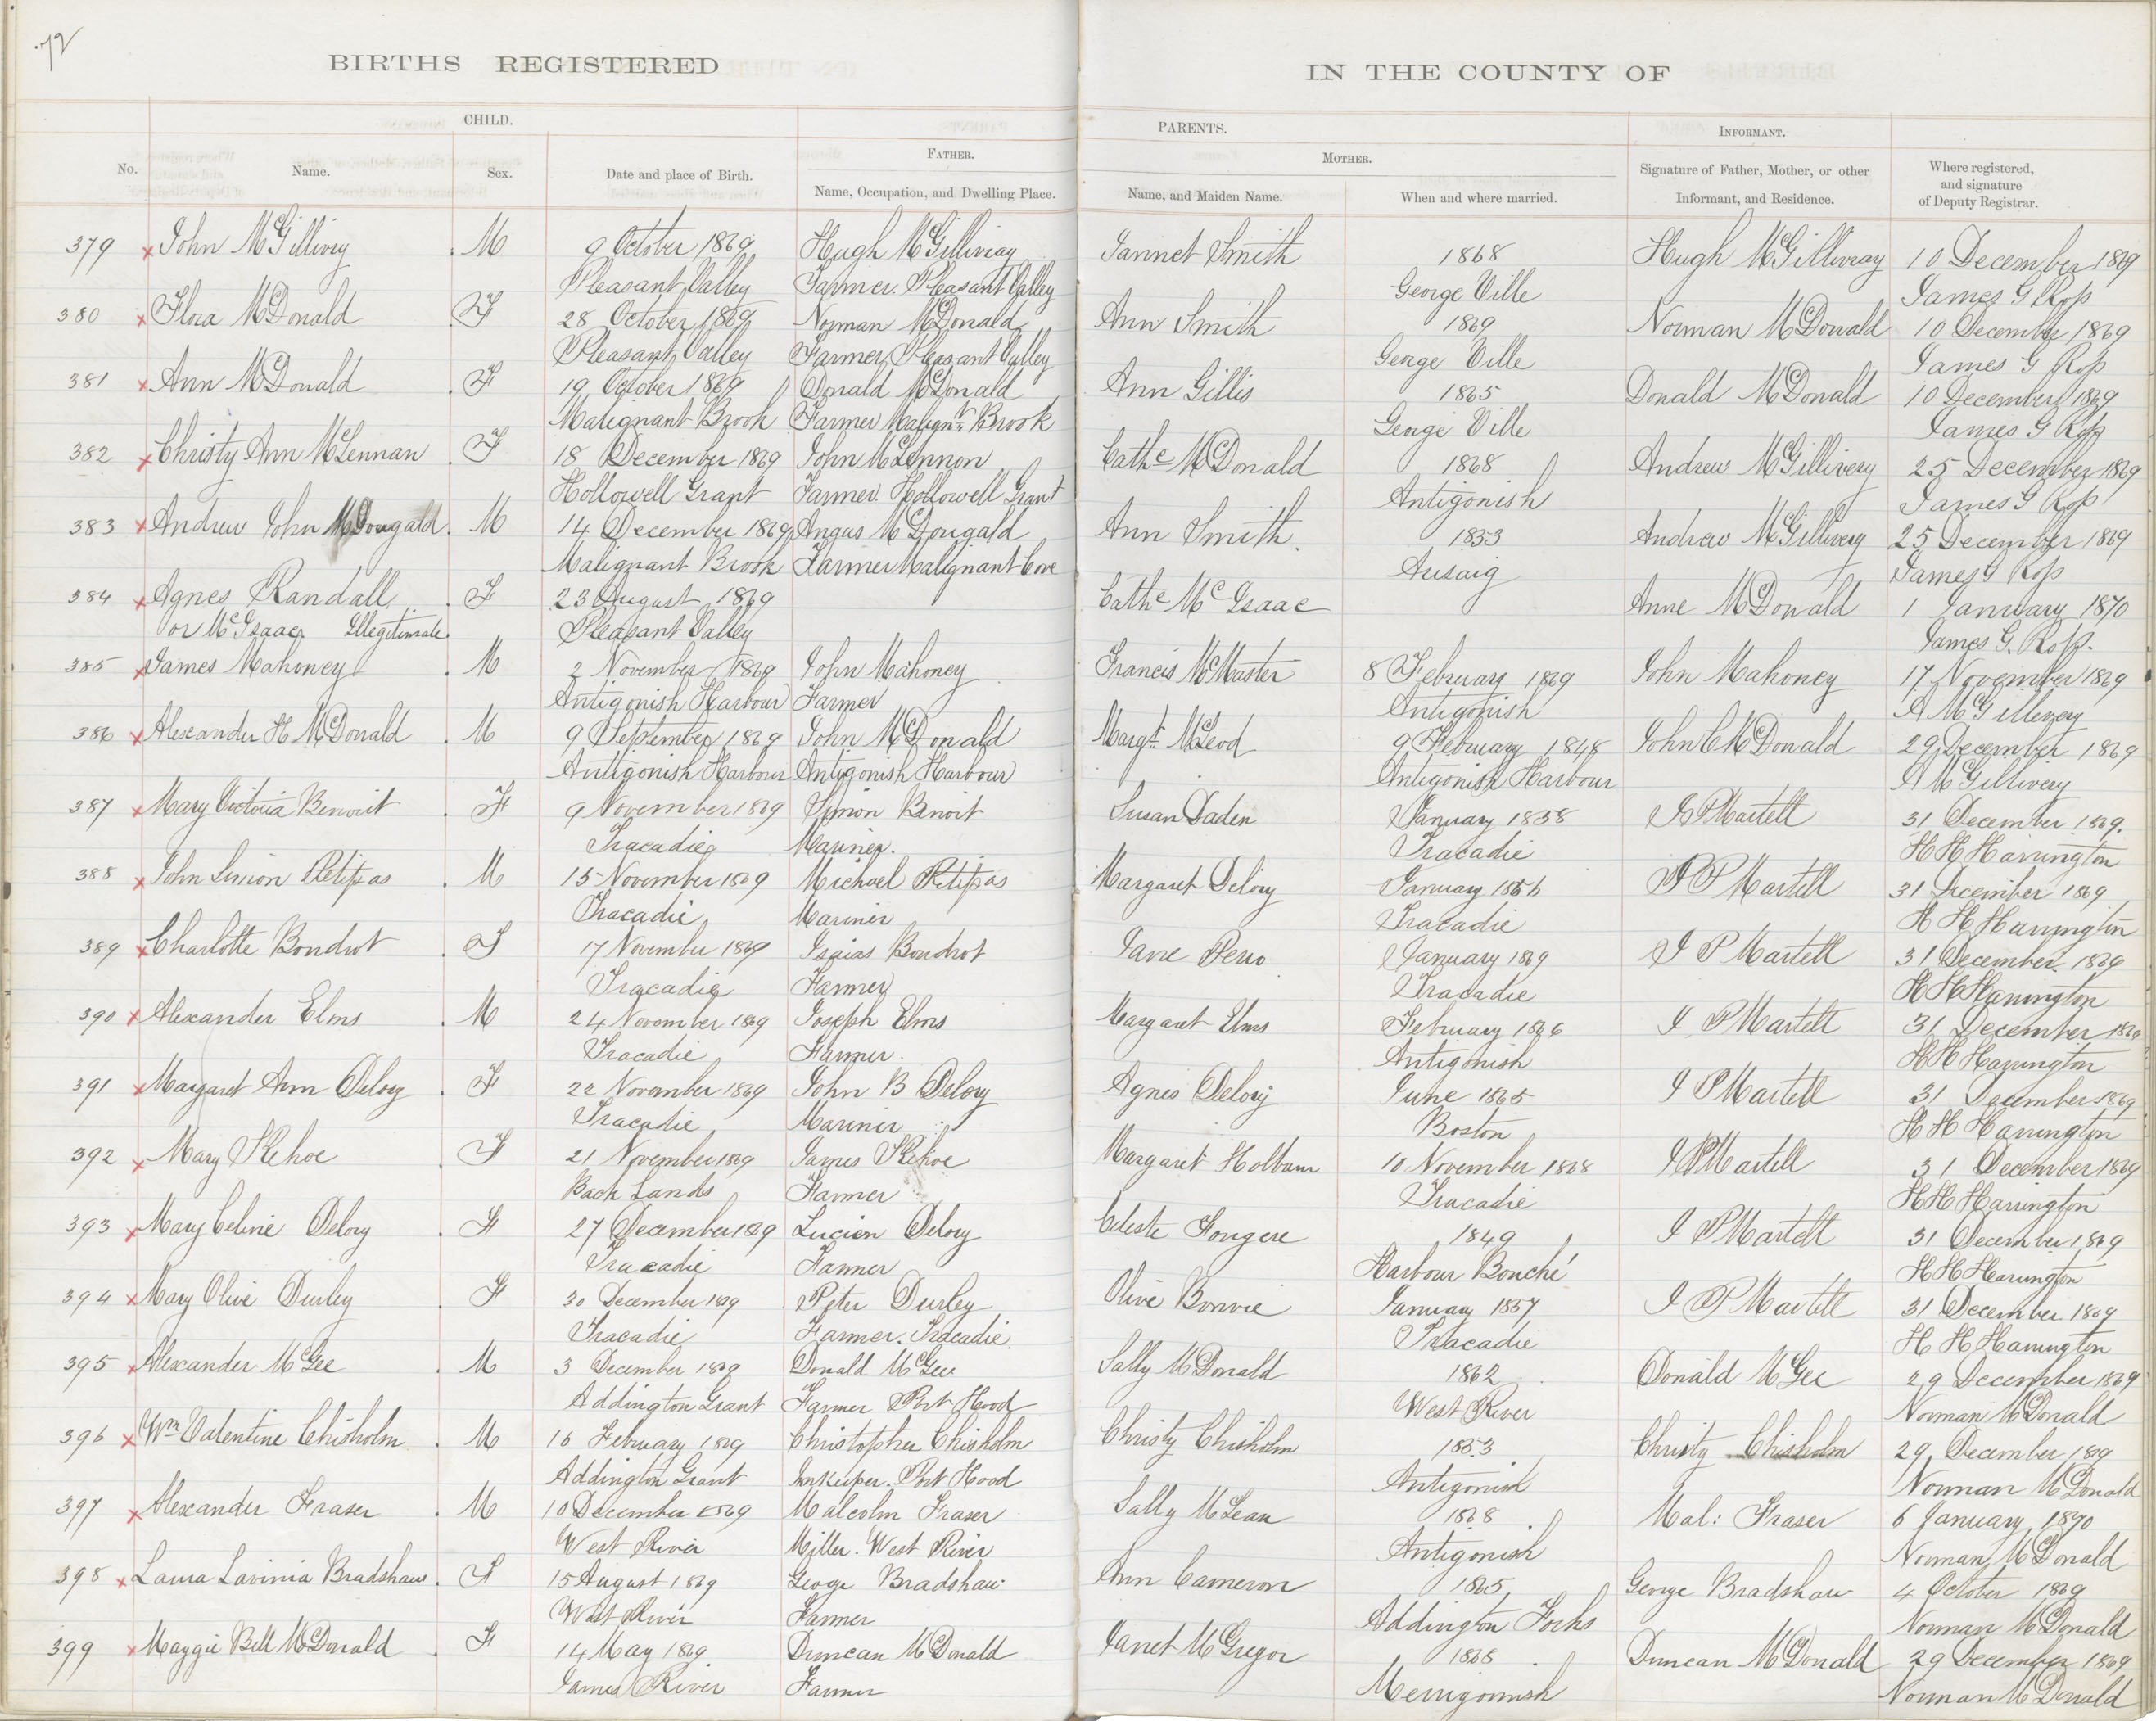 72
BIRTHS REGISTERED IN THE COUNTY OF
CHILD. PARENTS. INFORMANT.
FATHER. MOTHER.
No. Name. Sex. Date and place of Birth. Name, Occupation, and Dwelling Place. Name, and Maiden Name. When and where married. Signature of Father, Mother, or other Informant, and Residence. Where registered, and signature of Deputy Registrar.
379 x John McGillivry . M 9 October 1869 Hugh McGillivray Jannet Smith 1868 Hugh McGillivray 10 December 1869
Pleasant Valley Farmer. Pleasant Valley George Ville James G Ross
380 x Flora McDonald . F 28 October 1869 Norman McDonald Ann Smith 1869 Norman McDonald 10 December 1869
Pleasant Valley Farmer Pleasant Valley George Ville James G Ross
381 x Ann McDonald . F 19 October 1869 Donald McDonald Ann Gillis 1865 Donald McDonald 10 December 1869
Malignant Brook Farmer Malignt Brook George Ville James G Ross
382 x Christy Ann McLennan . F 18 December 1869 John McLennon Cathe McDonald 1868 Andrew McGillivery 25 December 1869
Hollowell Grant Farmer Hollowell Grant Antigonish James G Ross
383 x Andrew John McDougald . M 14 December 1869 Angus McDougald Ann Smith 1833 Andrew McGillivery 25 December 1869
Malignant Brook Farmer Malignant Cove Ausaig James G Ross
384 x Agnes Randall . F 23 August 1869 Cathe McIsaac Anne McDonald 1 January 1870
or McIsaac Illegitimate Pleasant Valley James G. Ross.
385 x James Mahoney . M 2 November 1869 John Mahoney Francis McMaster 8 February 1869 John Mahoney 17 November 1869
Antigonish Harbour Farmer Antigonish A McGillivery
386 x Alexander H McDonald . M 9 September 1869 John McDonald Margt McLeod 9 February 1848 John C McDonald 29 December 1869
Antigonish Harbour Antigonish Harbour Antigonish Harbour A McGillivery
387 x Mary Victoria Benoit . F 9 November 1869 Simon Benoit Susan Daden January 1858 I P Martell 31 December 1869.
Tracadie Mariner. Tracadie H H Harrington
388 x John Simon Petipas . M 15 November 1869 Michael Petipas Margaret Delory January 1856 I P Martell 31 December 1869
Tracadie Mariner Tracadie H H Harrington
389 x Charlotte Boudrot . F 17 November 1869 Isaias Boudrot Jane Perro January 1869 I P Martell 31 December 1869
Tracadie Farmer Tracadie H H Harrington
390 x Alexander Elms . M 24 November 1869 Joseph Elms Margaret Elms February 1866 I P Martell 31 December 1869
Tracadie Farmer. Antigonish H H Harrington
391 x Margaret Ann Delory . F 22 November 1869 John B Delory Agnes Delory June 1865 I P Martell 31 December 1869
Tracadie Mariner Boston H H Harrington
392 x Mary Kehoe . F 21 November 1869 James Kehoe Margaret Holbum 10 November 1868 I P Martell 31 December 1869
Back Lands Farmer Tracadie H H Harrington
393 x Mary Celine Delory . F 27 December 1869 Lucien Delory Celeste Fougere 1849 I P Martell 31 December 1869
Tracadie Farmer Harbour Bouché H H Harrington
394 x Mary Olive Durley . F 30 December 1869 Peter Durley Olive Bonvie January 1857 I P Martell 31 December 1869
Tracadie Farmer. Tracadie. Tracadie H H Harrington
395 x Alexander McGee . M 3 December 1869 Donald McGee Sally McDonald 1862 Donald McGee 29 December 1869
Addington Grant Farmer Port Hood West River Norman McDonald
396 x Wm Valentine Chisholm . M 16 February 1869 Christopher Chisholm Christy Chisholm 1853 Christy Chisholm 29 December 1869
Addington Grant Innkeeper. Port Hood Antigonish Norman McDonald
397 x Alexander Fraser . M 10 December 1869 Malcolm Fraser Sally McLean 1868 Mal: Fraser 6 January 1870
West River Miller. West River Antigonish Norman McDonald
398 x Laura Lavinia Bradshaw . F 15 August 1869 George Bradshaw Ann Cameron 1865 George Bradshaw 4 October 1869
West River Farmer Addington Forks Norman McDonald
399 x Maggie Bell McDonald . F 14 May 1869 Duncan McDonald Janet McGregor 1868 Duncan McDonald 29 December 1869
James River Farmer Merrigomish Norman McDonald